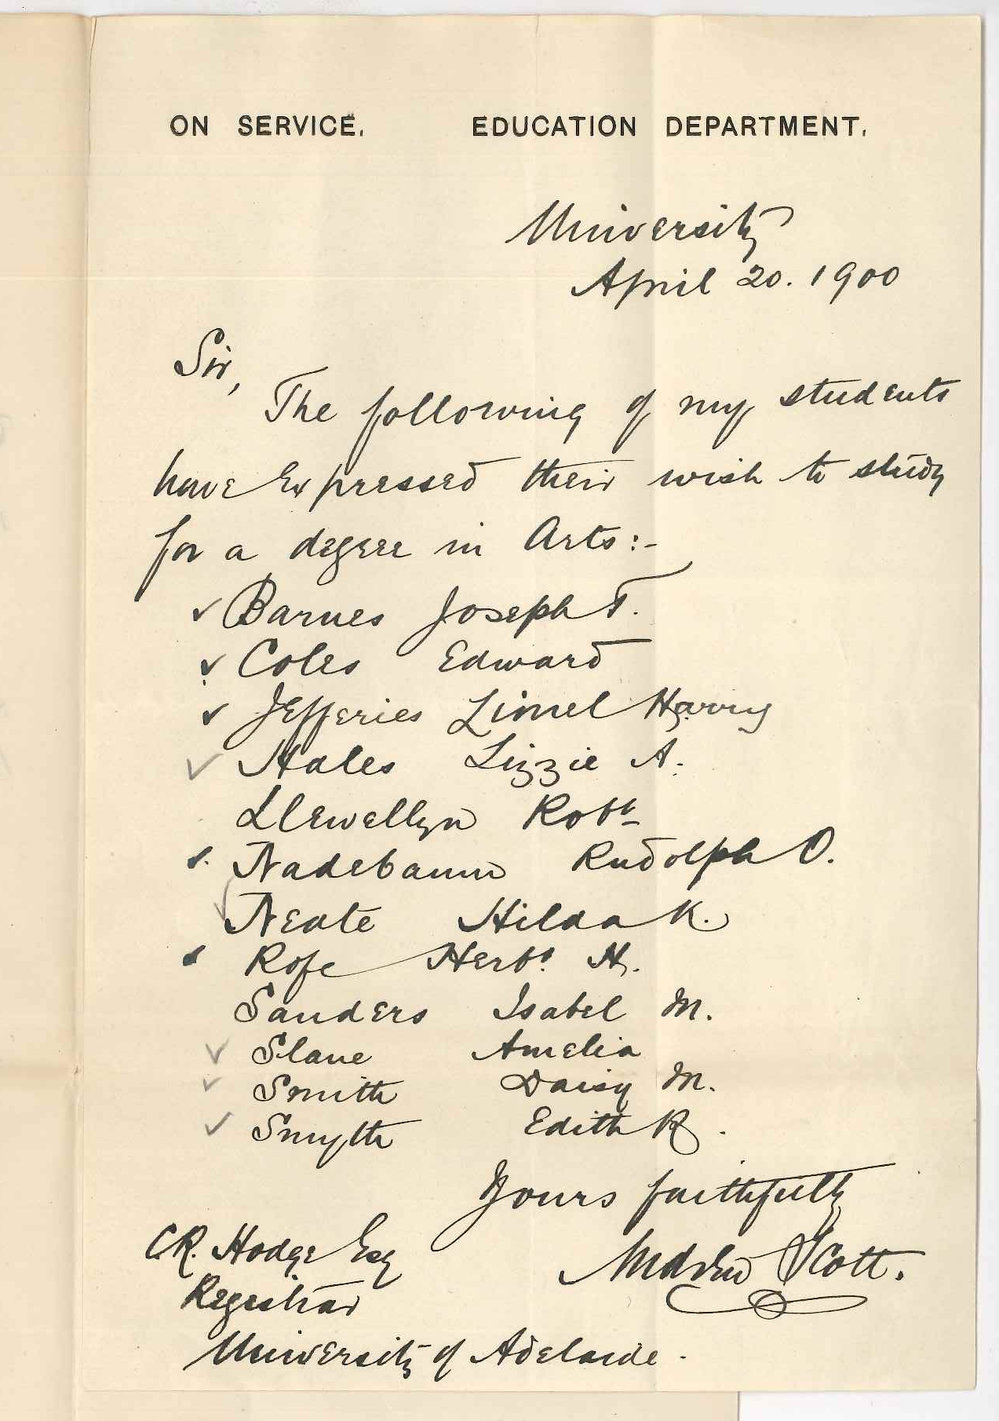 ON SERVICE. EDUCATION DEPARTMENT.
University
April 20. 1900
Sir,
The following of my students
have expressed their wish to study
for a degree in Arts:-
✓ Barnes Joseph T.
✓ Coles Edward
✓ Jefferies Lionel Harry
✓ Hales Lizzie A.
Llewellyn Robt
Nadebaum Rudolph O.
✓ Neate Hilda K.
Rofe Herbt. H.
Sanders Isabel M.
✓ Slane Amelia
✓ Smith Daisy M.
✓ Smyth Edith R.
Yours faithfully
Andrew Scott.
C.R. Hodge Esq
Registrar
University of Adelaide.